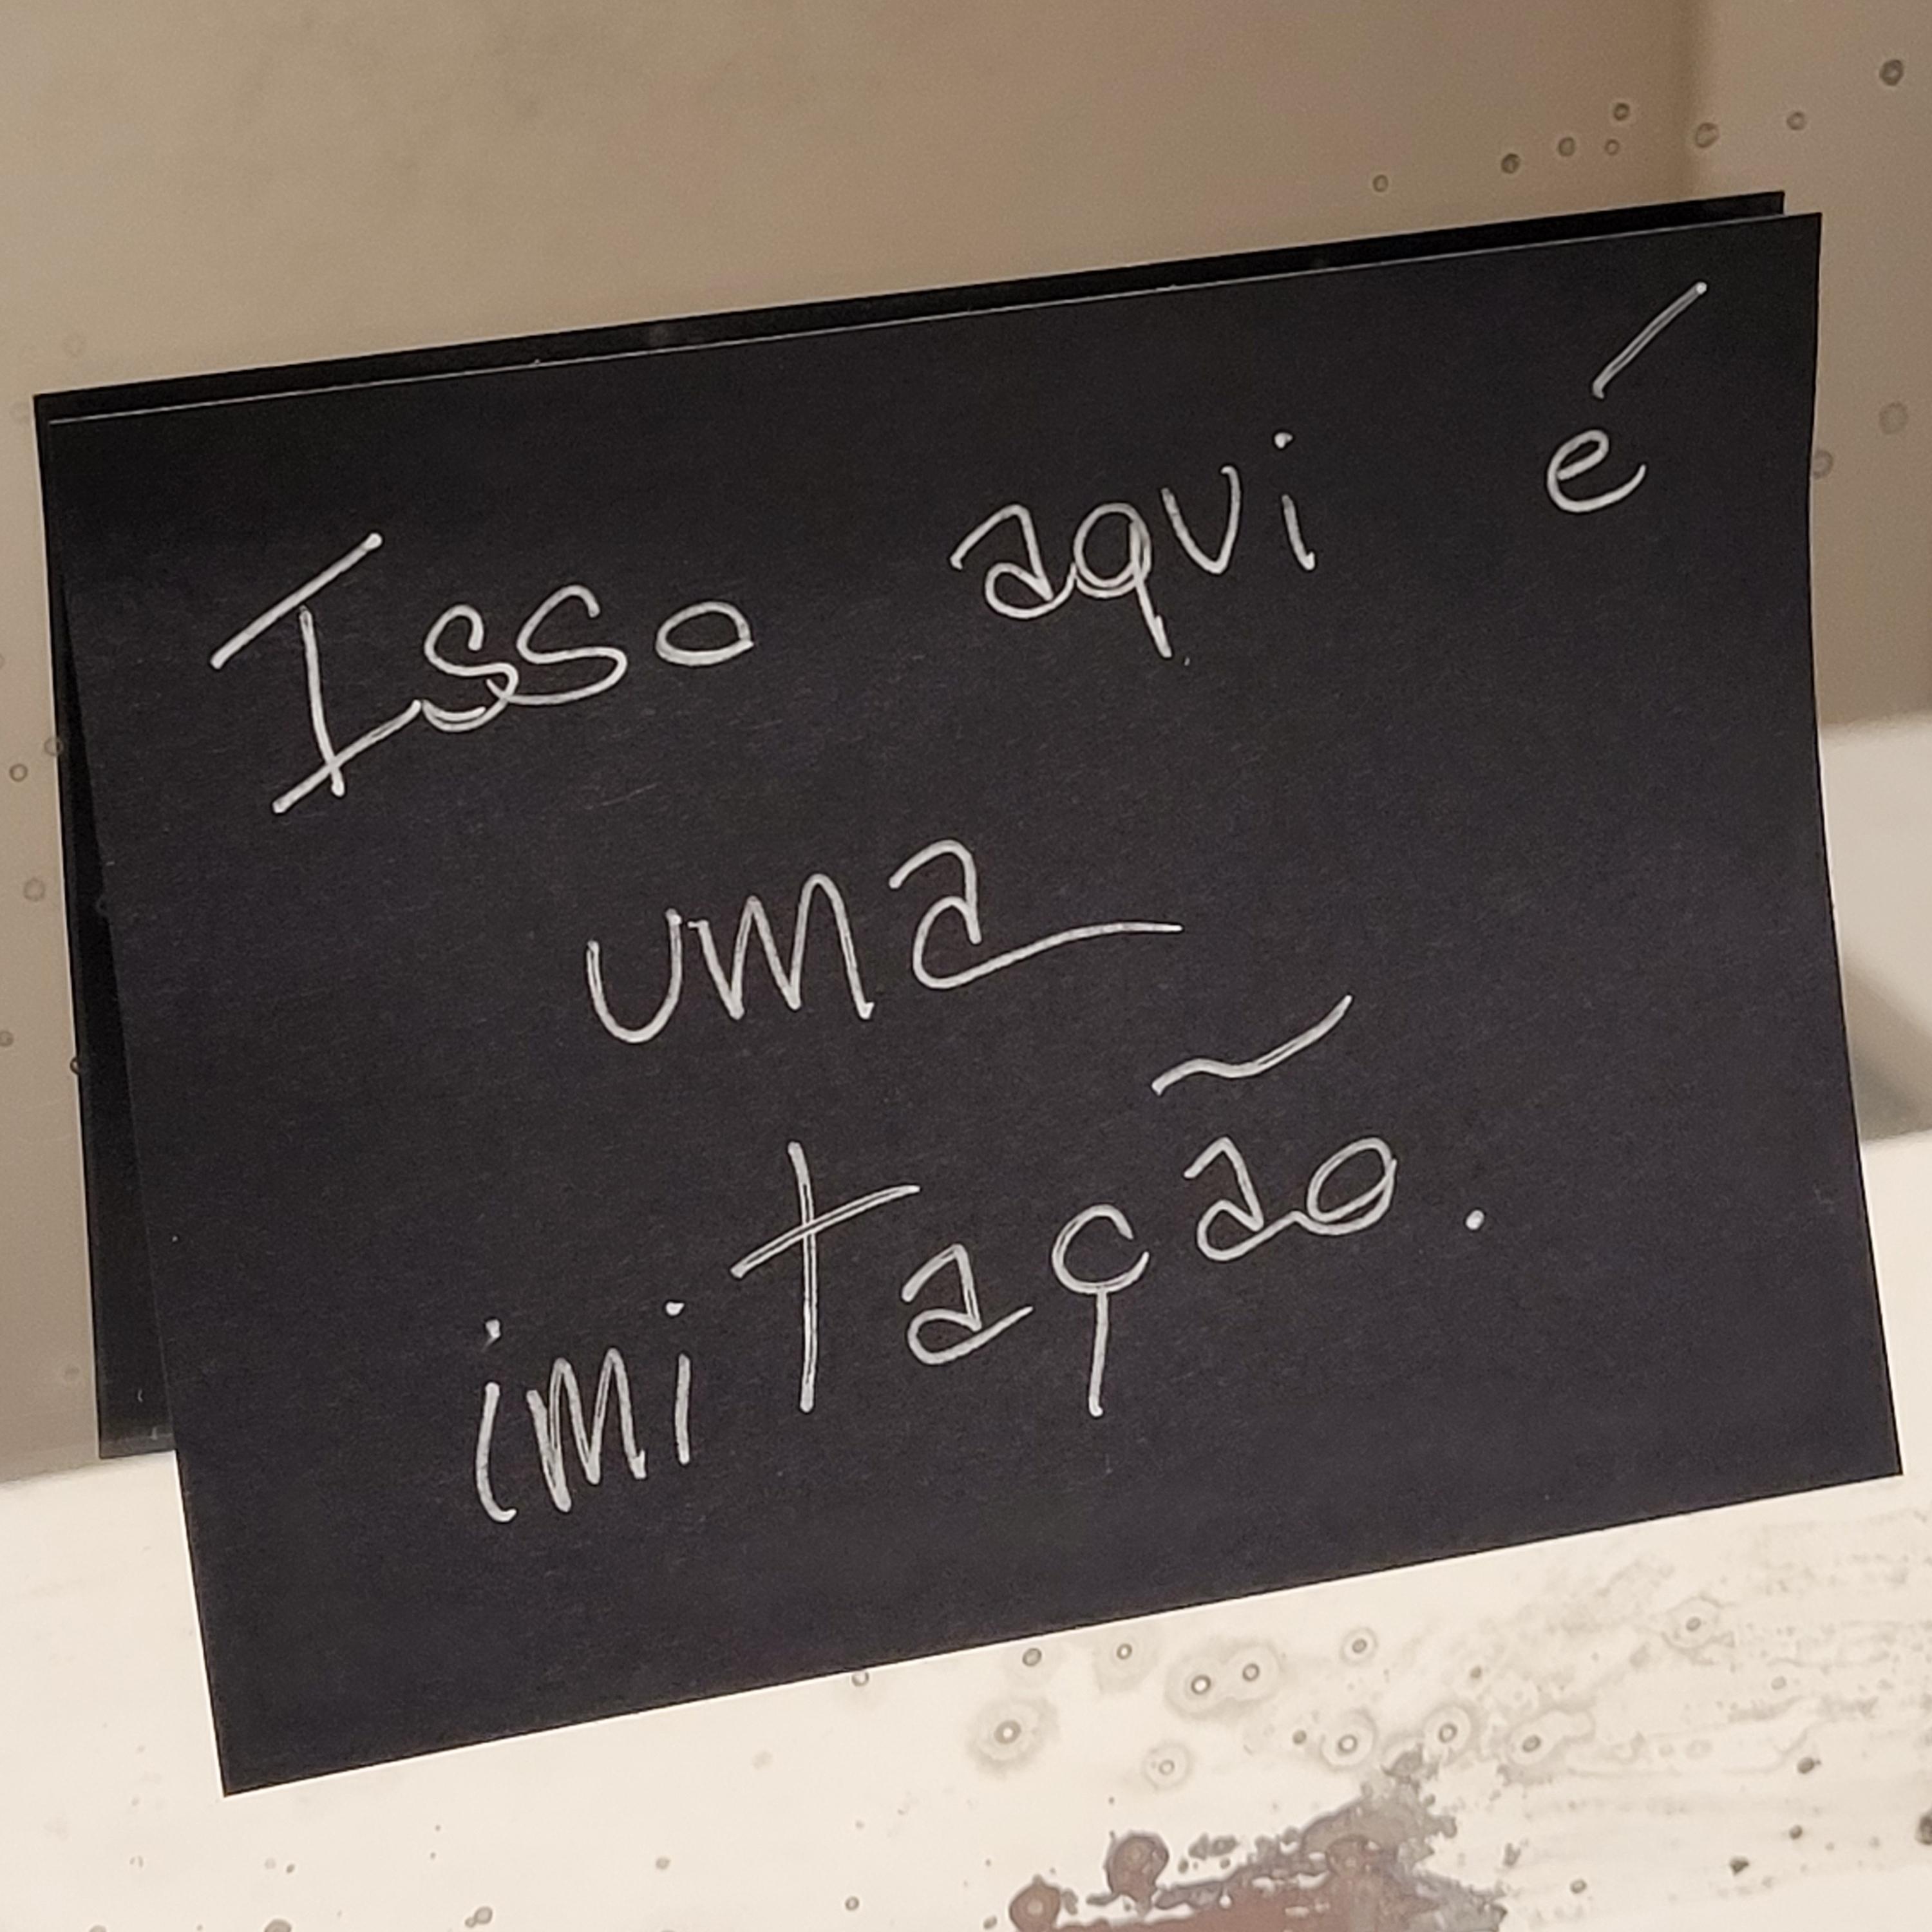 Isso aqui é
uma
imitação.